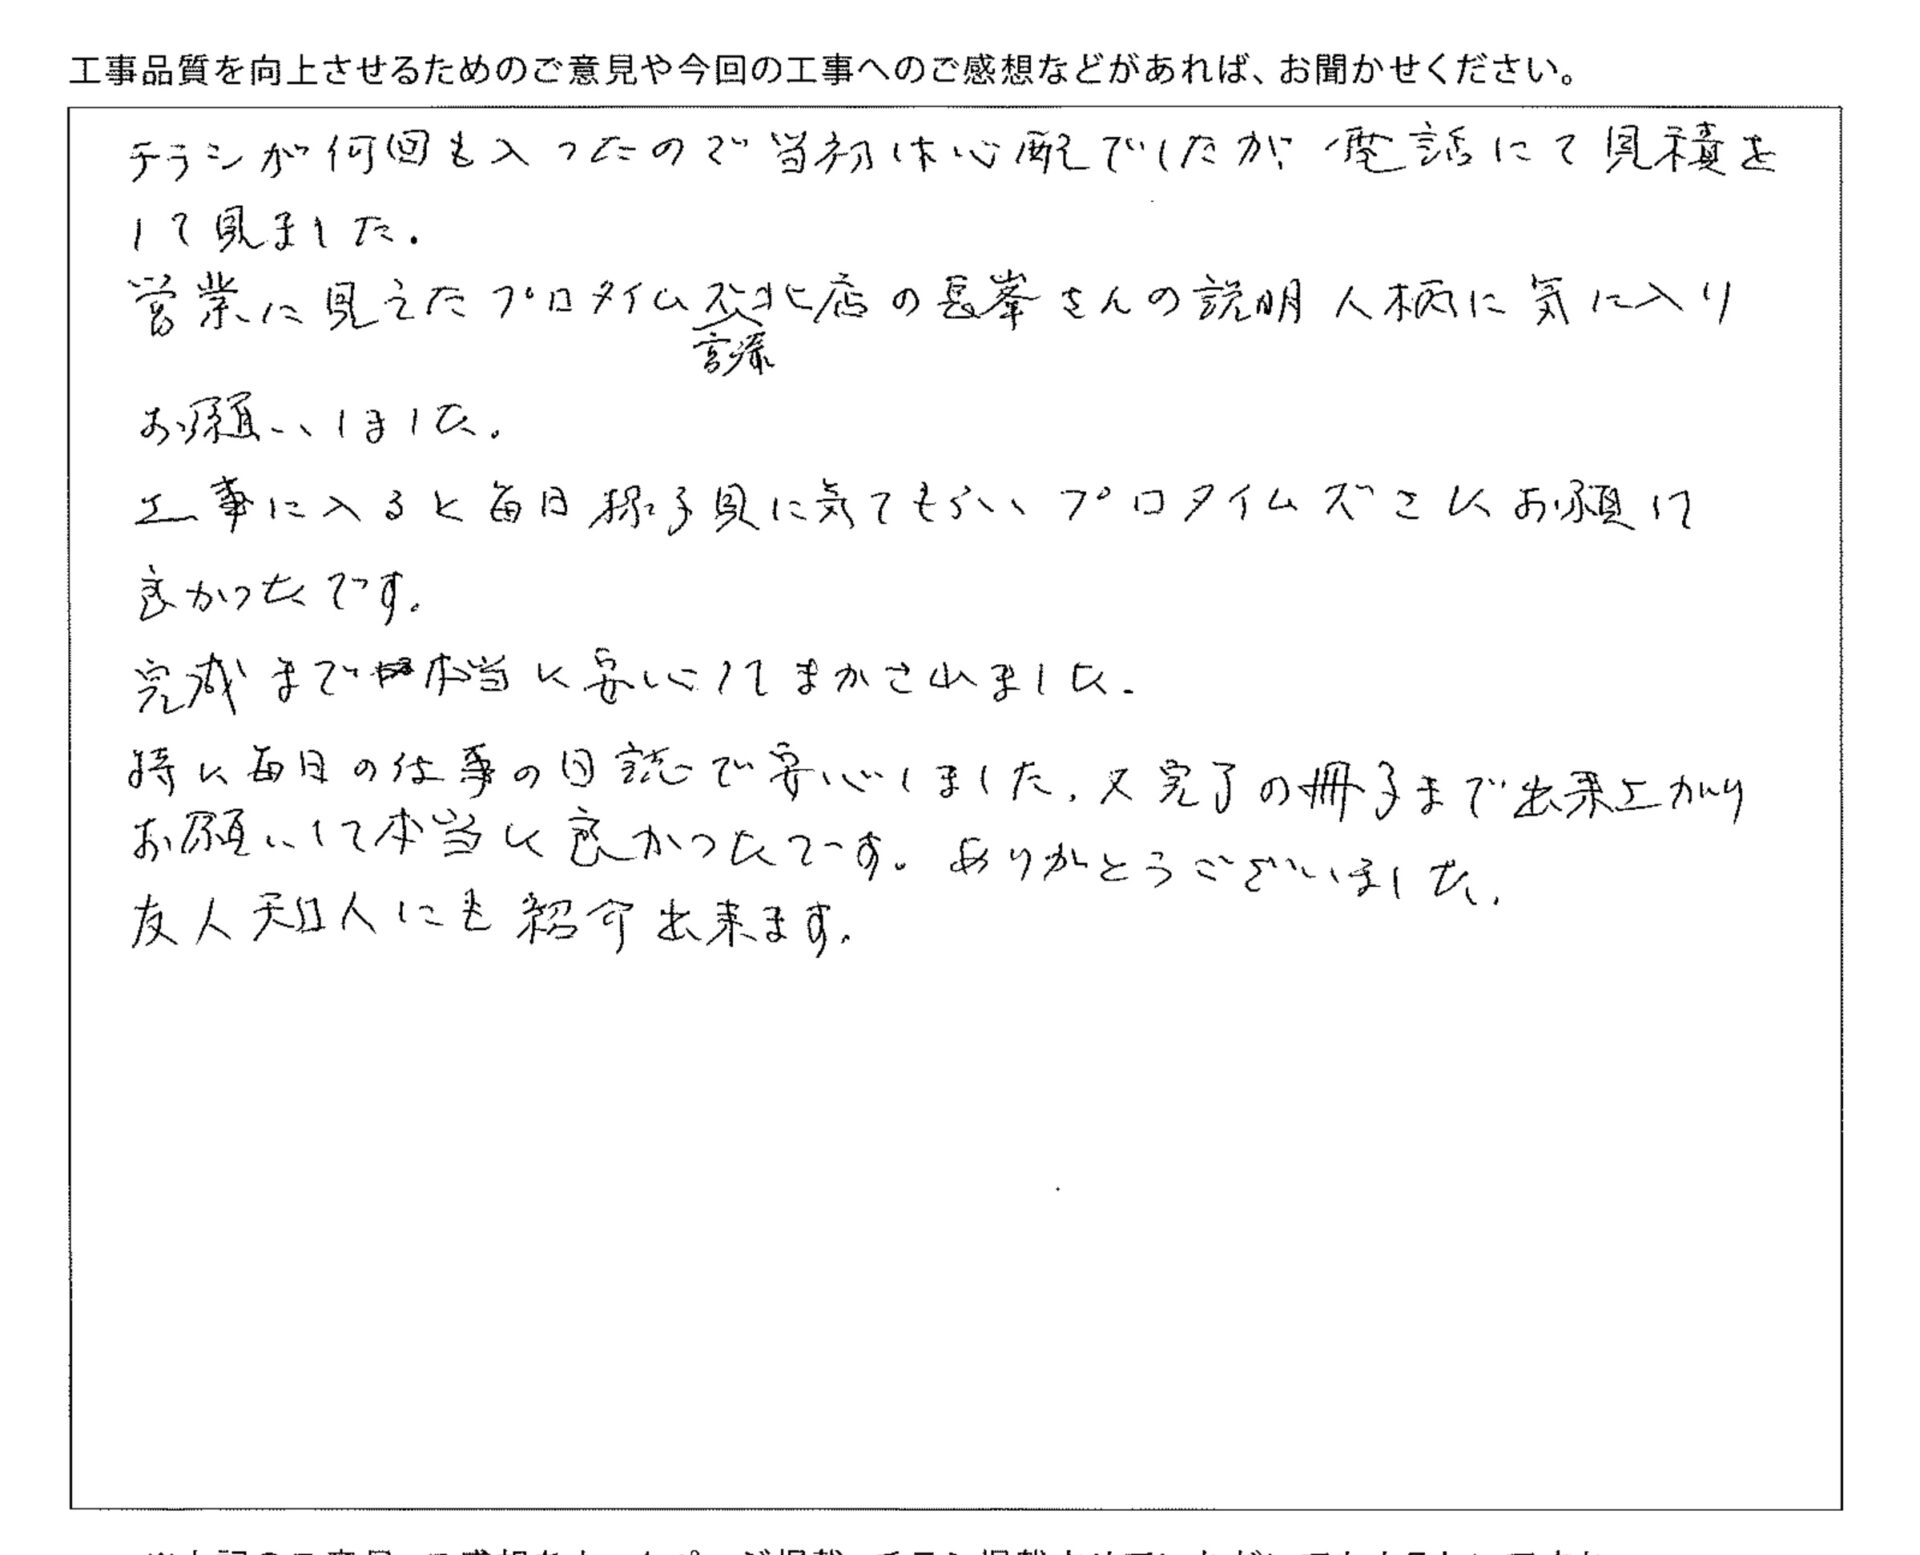 工事品質を向上させるためのご意見や今回の工事へのご感想などがあれば、お聞かせください。
チラシが何回も入ったので当初は心配でしたが、電話にて見積を
して見ました.
営業に見えたプロタイムズ北店の長峯さんの説明人柄に気に入り
お願いしました.
工事に入ると毎日様子見に気てもらい、プロタイムズさんにお願して
良かったです.
完成まで本当に安心してまかされました.
特に毎日の仕事の日誌で安心しました.又完了の冊子まで出来上がり
お願いして本当に良かったです。ありがとうございました.
友人知人にも紹介出来ます.